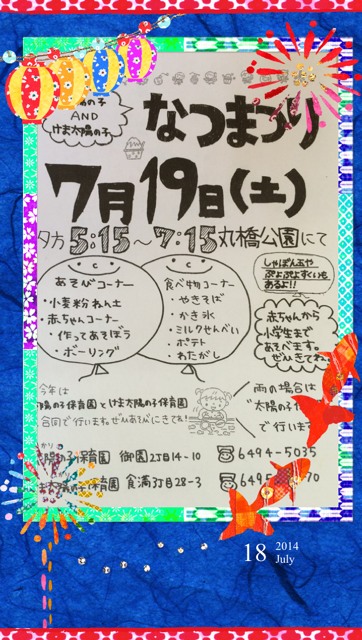 陽の子
AND
けま太陽の子
なつまつり
7月19日(土)
夕方5:15～7:15丸橋公園にて
あそびコーナー
・小麦粉ねんど
・赤ちゃんコーナー
・作ってあそぼう
・ボーリング
食べ物コーナー
・やきそば
・かき氷
・ミルクせんべい
・ポテト
・わたがし
しゃぼん玉や
ぷよぷよすくいも
あるよ!!
赤ちゃんから
小学生まで
あそべます。
ぜひきてね
今年は
陽の子保育園とけま太陽の子保育園
合同で行います。ぜひあそびにきてね!
雨の場合は
太陽の子
で行います
保育園 御園2丁目14-10 ☎6494-5035
保育園 食満3丁目28-3
18 2014
July